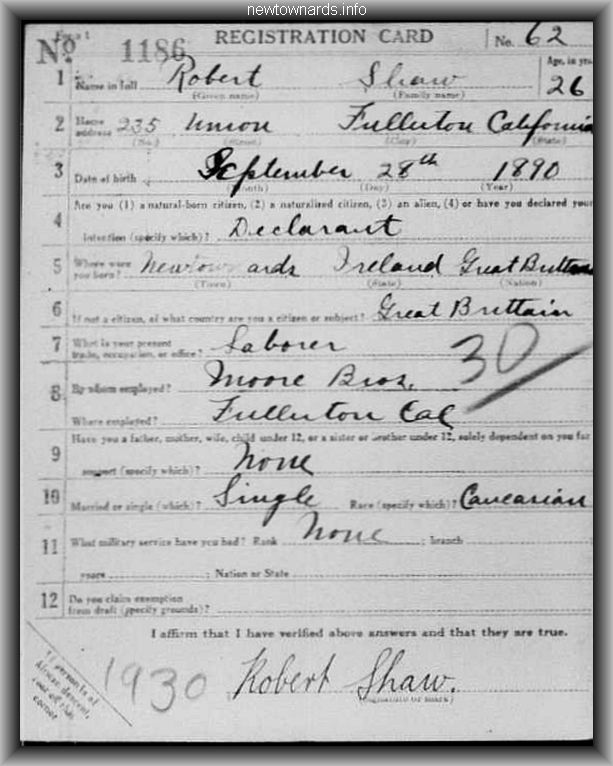 newtownards.info
Form 1
REGISTRATION CARD
No. 62
No 1186
Age, in yrs.
1 Name in full Robert Shaw 26
(Given name) (Family name)
2 Home address 235 Union Fullerton California
(No.) (Street) (City) (State)
3 Date of birth September 28th 1890
(Month) (Day) (Year)
Are you (1) a natural-born citizen, (2) a naturalized citizen, (3) an alien, (4) or have you declared your
4 intention (specify which)? Declarant
5 Where were you born? Newtownards Ireland Great Brittain
(Town) (State) (Nation)
6 If not a citizen, of what country are you a citizen or subject? Great Brittain
7 What is your present trade, occupation, or office? Laborer
30
8 By whom employed? Moore Bros.
Where employed? Fullerton Cal
Have you a father, mother, wife, child under 12, or a sister or brother under 12, solely dependent on you for
9 support (specify which)? None
10 Married or single (which)? Single Race (specify which)? Caucasian
11 What military service have you had? Rank None ; branch
years ; Nation or State
12 Do you claim exemption
from draft (specify grounds)?
I affirm that I have verified above answers and that they are true.
1930 Robert Shaw.
(Signature or mark)
If person is of
African descent,
tear off this
corner